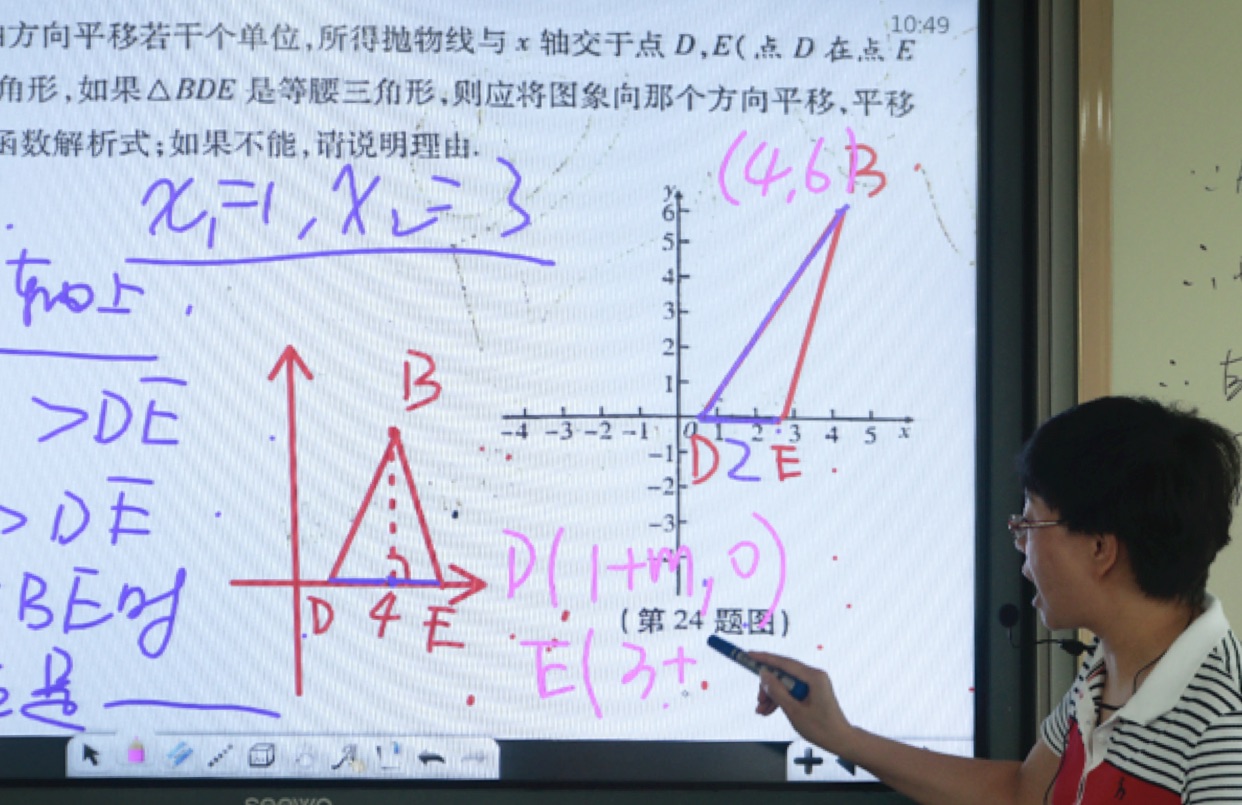 10:49
方向平移若干个单位,所得抛物线与 x 轴交于点 D,E(点 D 在点 E
角形,如果△BDE 是等腰三角形,则应将图象向那个方向平移,平移
函数解析式;如果不能,请说明理由.
x₁=1, x₂=3
轴上.
>DE
>DE
BE时
(4,6)B
y
6
5
4
3
2
1
-4 -3 -2 -1 0 1 2 3 4 5 x
-1
-2
-3
D 2 E
B
D 4 E
D(1+m,0)
(第 24 题图)
E(3+
seewo